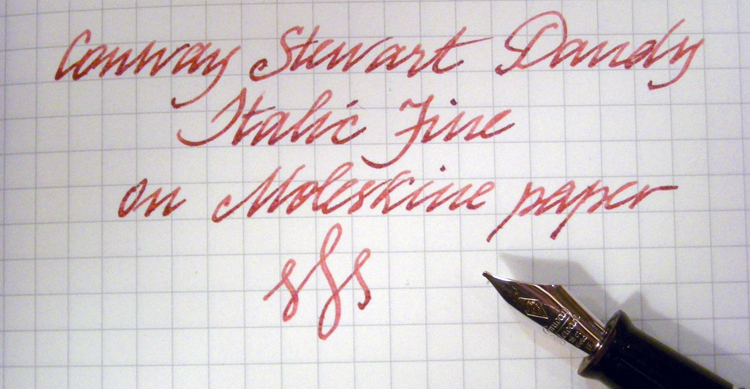 Conway Stewart Dandy
Italic Fine
on Moleskine paper
sfs